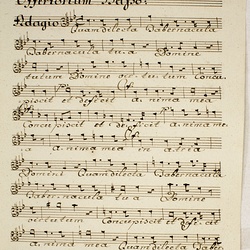 Offertorium Basso.
Adagio Quam dilecta Tabernacula
Tabernacula tua Domine
tutum Domino vir tu tum Concu
piscit et deficit anima mea
Concupiscit et deficit anima me
a anima mea in atria
Domini Quam dilecta Tabernacula
Tabernacula tua Domine
virtutum Concupiscit et defi cit
anima mea Quam dilecta Taber